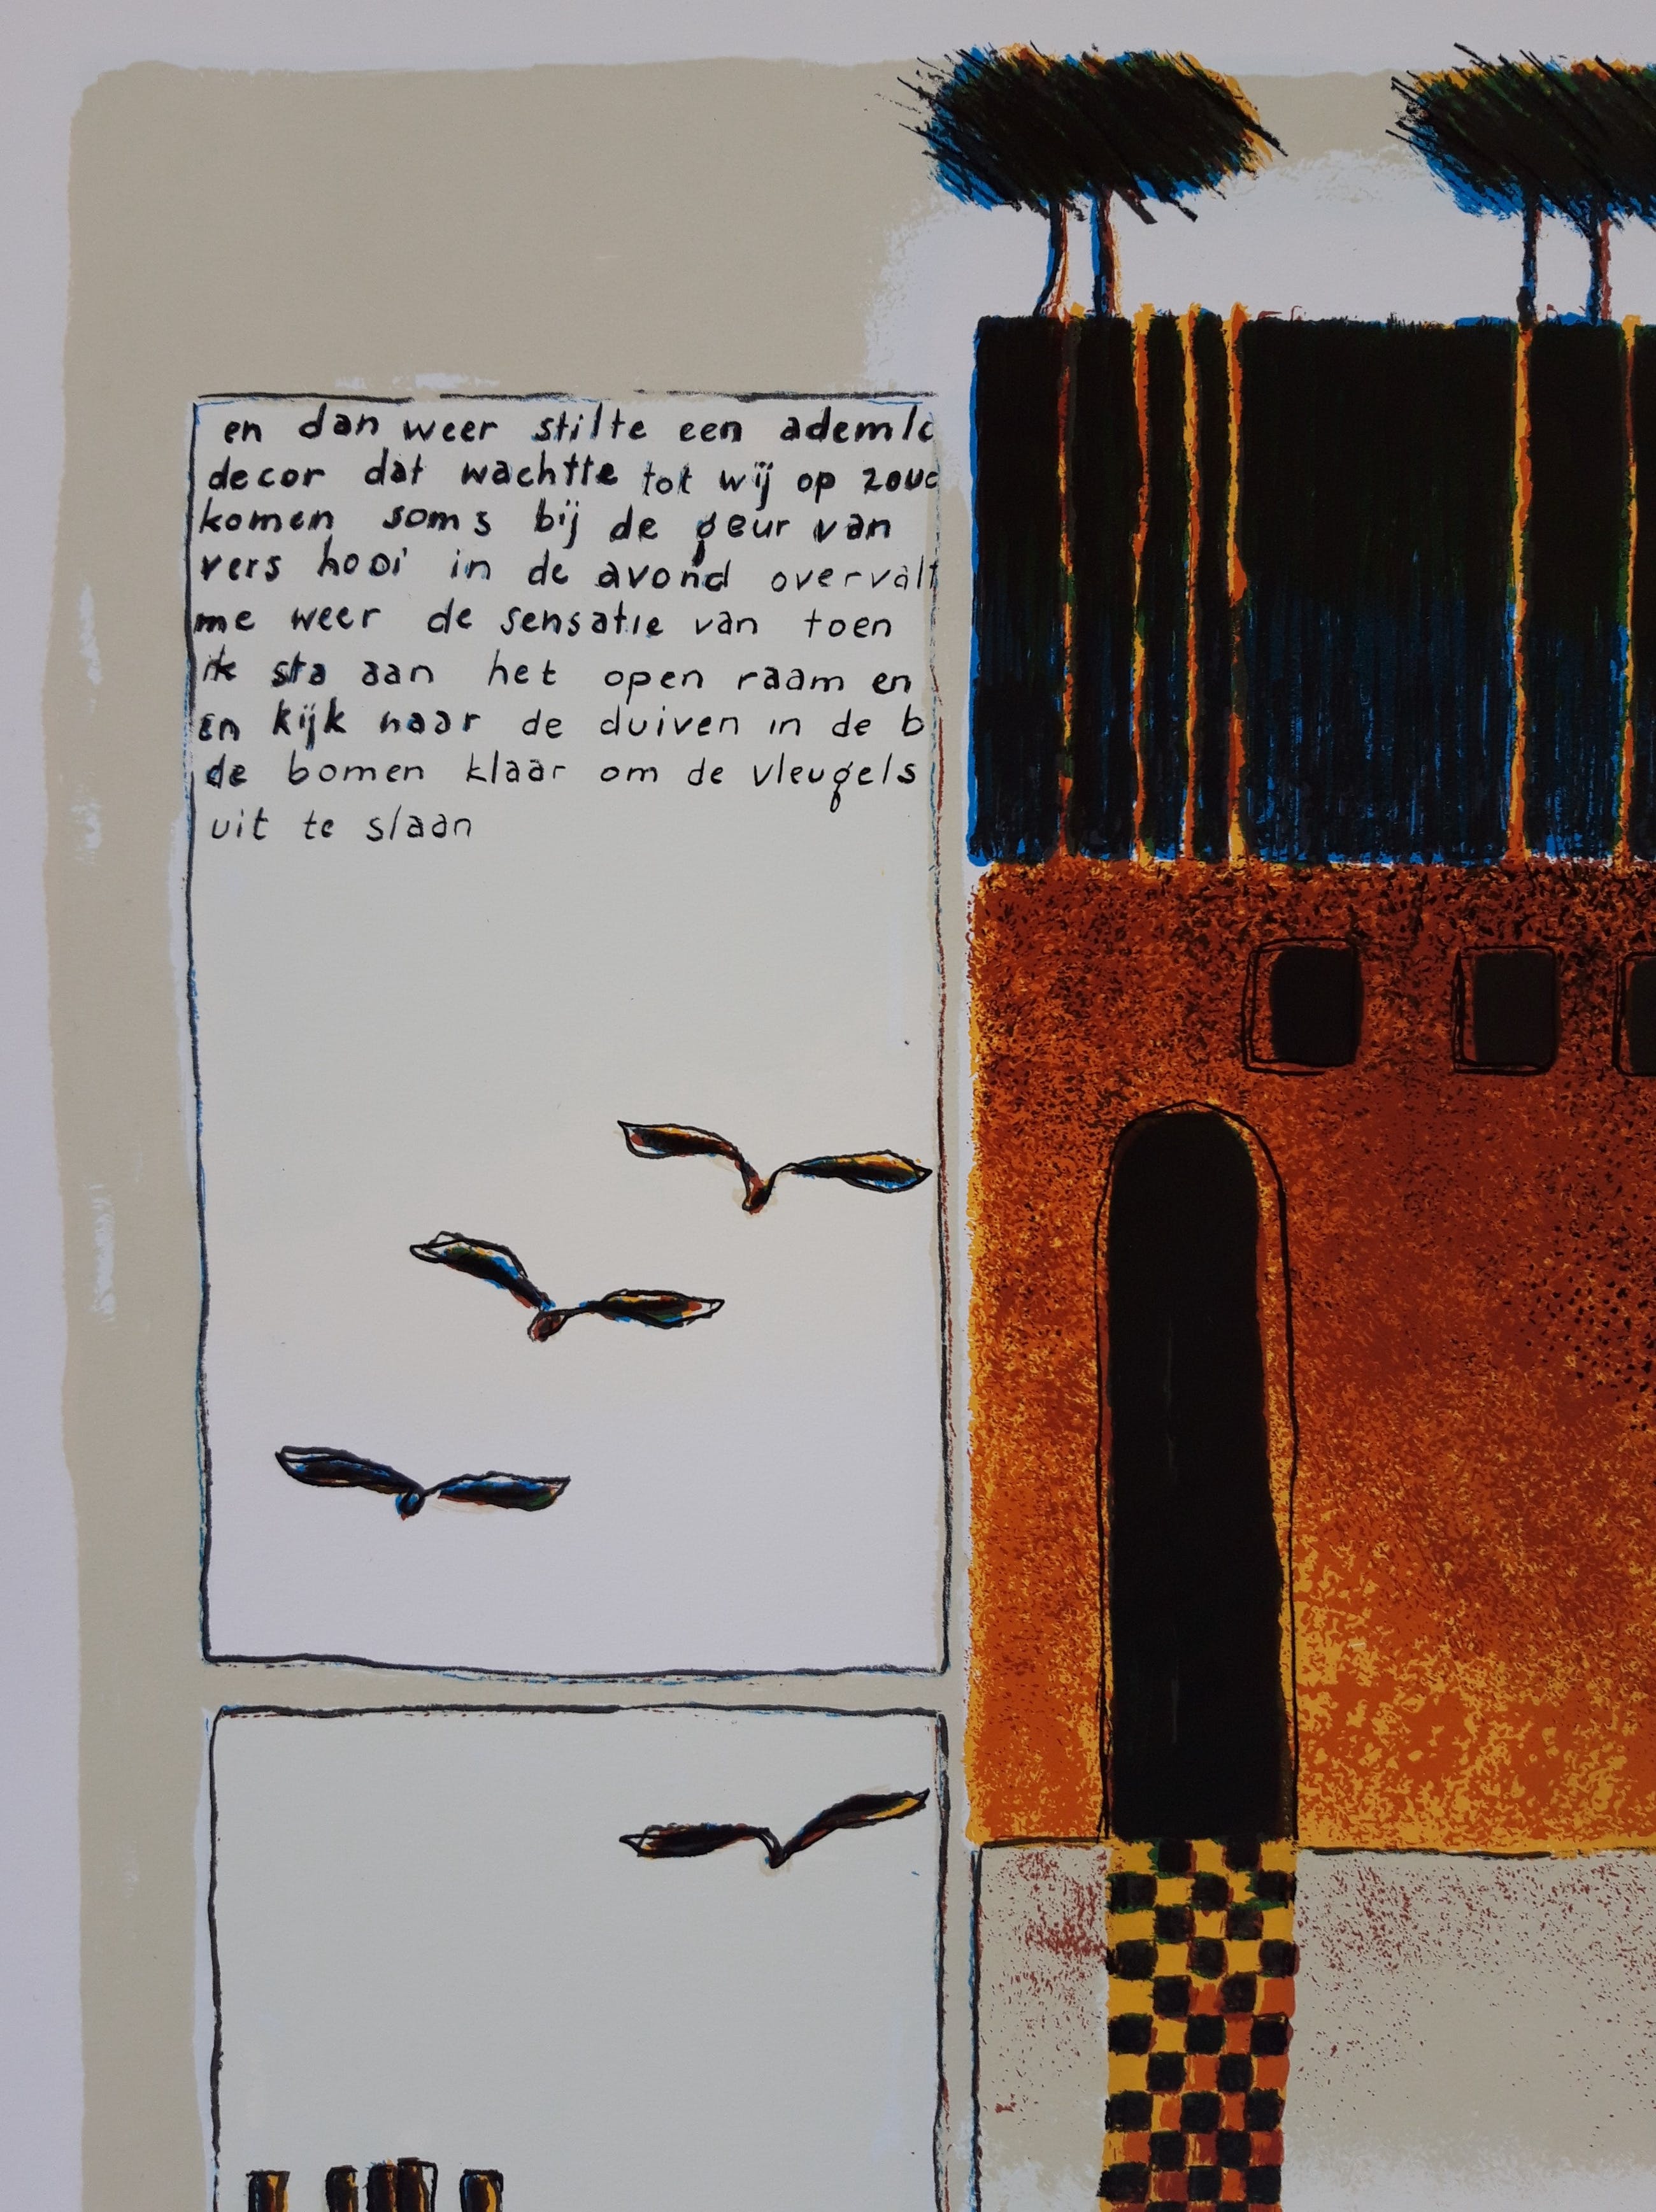 en dan weer stilte een ademlo
decor dat wachtte tot wij op zoud
komen soms bij de geur van
vers hooi in de avond overvalt
me weer de sensatie van toen
ik sta aan het open raam en
en kijk naar de duiven in de b
de bomen klaar om de vleugels
uit te slaan